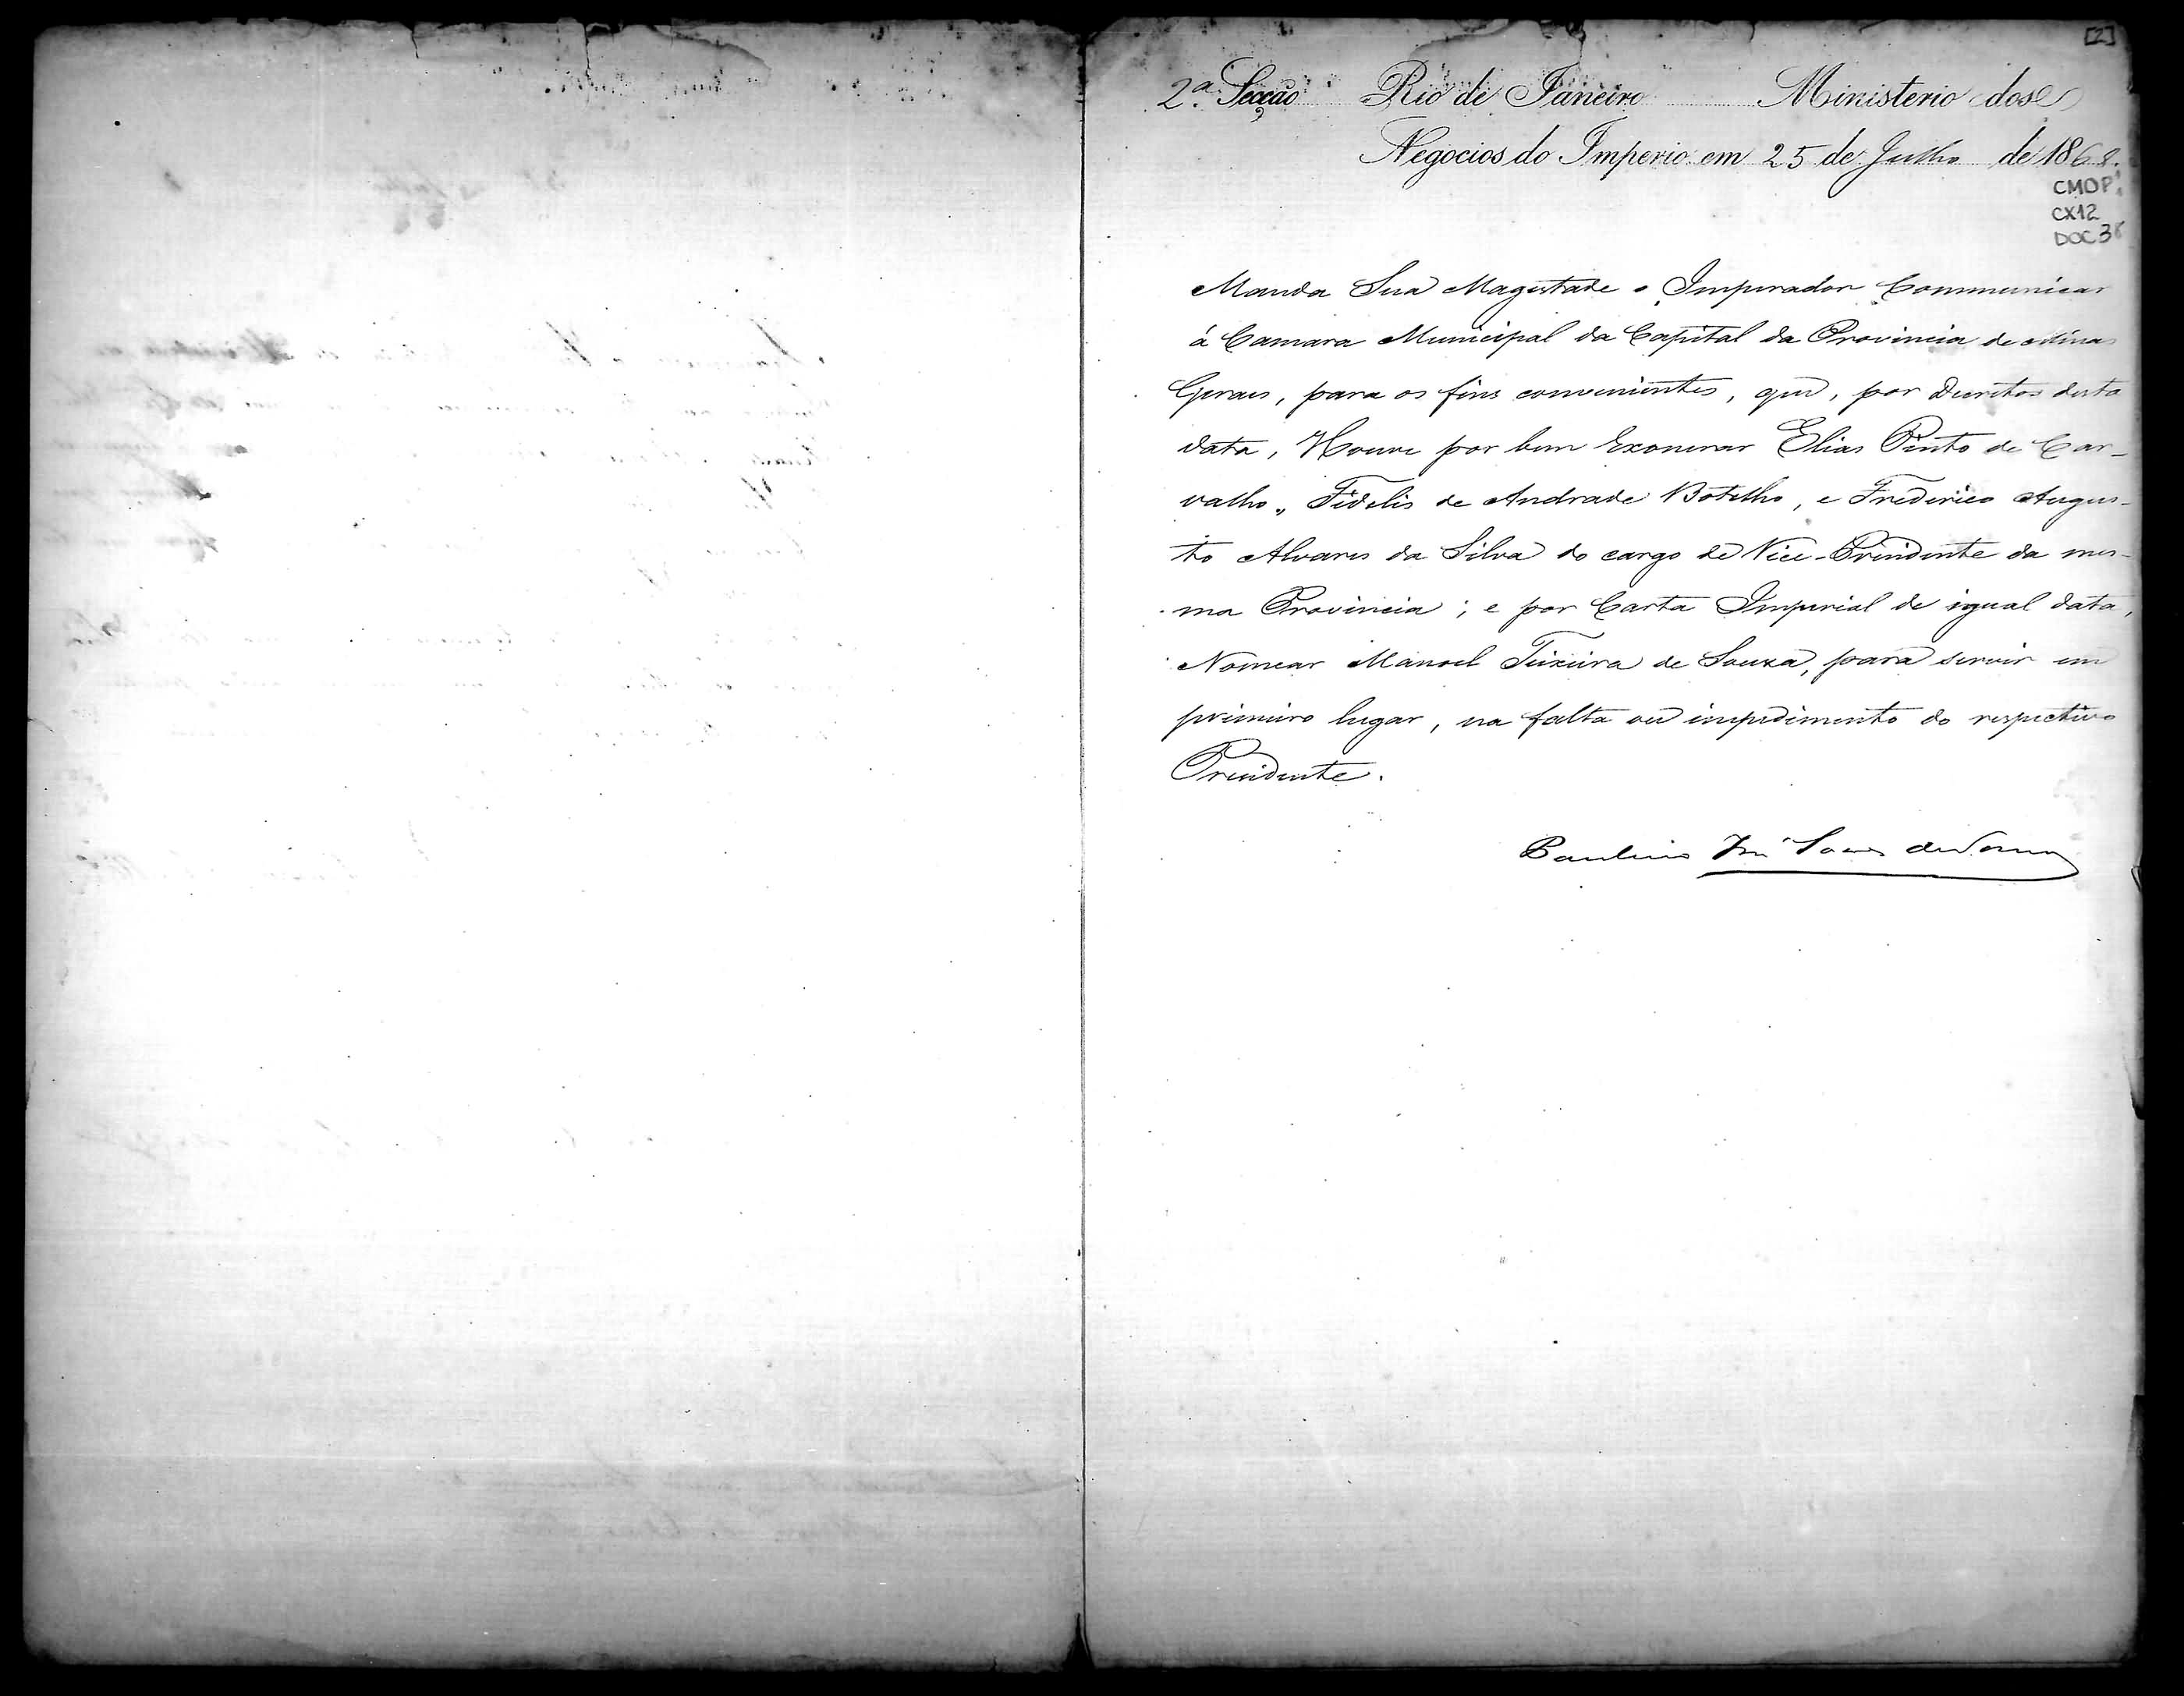 [2]
2ª Secção Rio de Janeiro Ministerio dos
Negocios do Imperio em 25 de Julho de 1868.
CMOP
CX12
DOC 38
Manda Sua Magestade o Imperador Communicar
á Camara Municipal da Capital da Provincia de Minas
Geraes, para os fins convenientes, que, por Decretos desta
data, Houve por bem Exonerar Elias Pinto de Car-
valho, Fidelis de Andrade Botelho, e Frederico Augus-
to Alvares da Silva do cargo de Vice-Presidente da mes-
ma Provincia; e por Carta Imperial de igual data,
Nomear Manoel Teixeira de Souza, para servir em
primeiro lugar, na falta ou impedimento do respectivo
Presidente.
Paulino José Soares de Souza